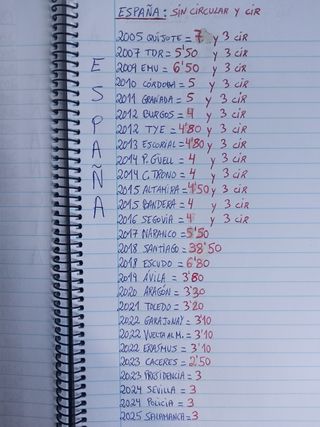 ESPAÑA: SIN CIRCULAR Y CIR
ESPAÑA
2005 QUIJOTE = 7 y 3 CIR
2007 TDR = 5'50 y 3 CIR
2009 EMU = 6'50 y 3 CIR
2010 CÓRDOBA = 5 y 3 CIR
2011 GRANADA = 5 y 3 CIR
2012 BURGOS = 4 y 3 CIR
2012 TYE = 4'80 y 3 CIR
2013 ESCORIAL = 4'80 y 3 CIR
2014 P. GÜELL = 4 y 3 CIR
2014 C. TRONO = 4 y 3 CIR
2015 ALTAMIRA = 4'50 y 3 CIR
2015 BANDERA = 4 y 3 CIR
2016 SEGOVIA = 4 y 3 CIR
2017 NARANCO = 5'50
2018 SANTIAGO = 38'50
2018 ESCUDO = 6'80
2019 ÁVILA = 3'80
2020 ARAGÓN = 3'30
2021 TOLEDO = 3'20
2022 GARAJONAY = 3'10
2022 VUELTA AL M. = 3'10
2022 ERASMUS = 3'10
2023 CACERES = 2'50
2023 PRESIDENCIA = 3
2024 SEVILLA = 3
2024 POLICIA = 3
2025 SALAMANCA = 3